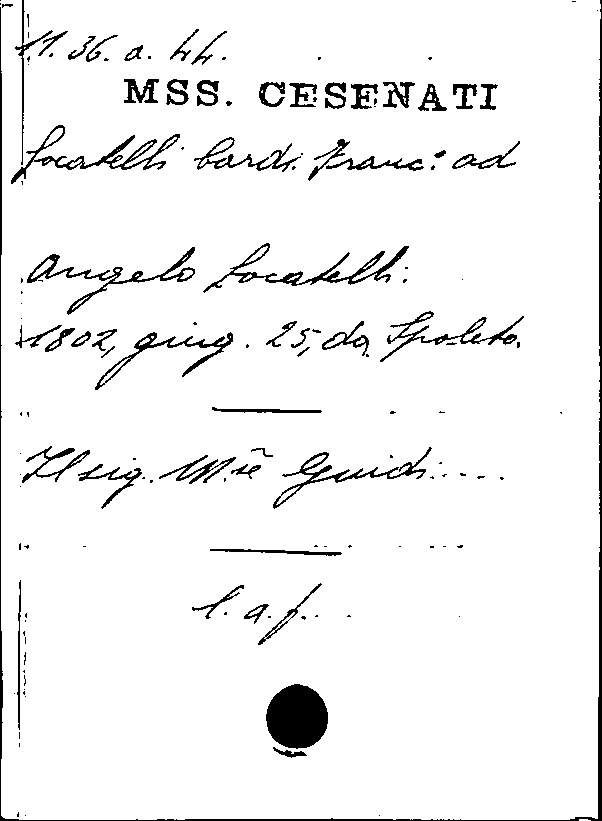 11. 36. a. 44.
MSS. CESENATI
Locatelli card. Franc.º ad
Angelo Locatelli.
1802, giug. 25, da Spoleto.
Il sig. M.se Guidi....
l. a. f...